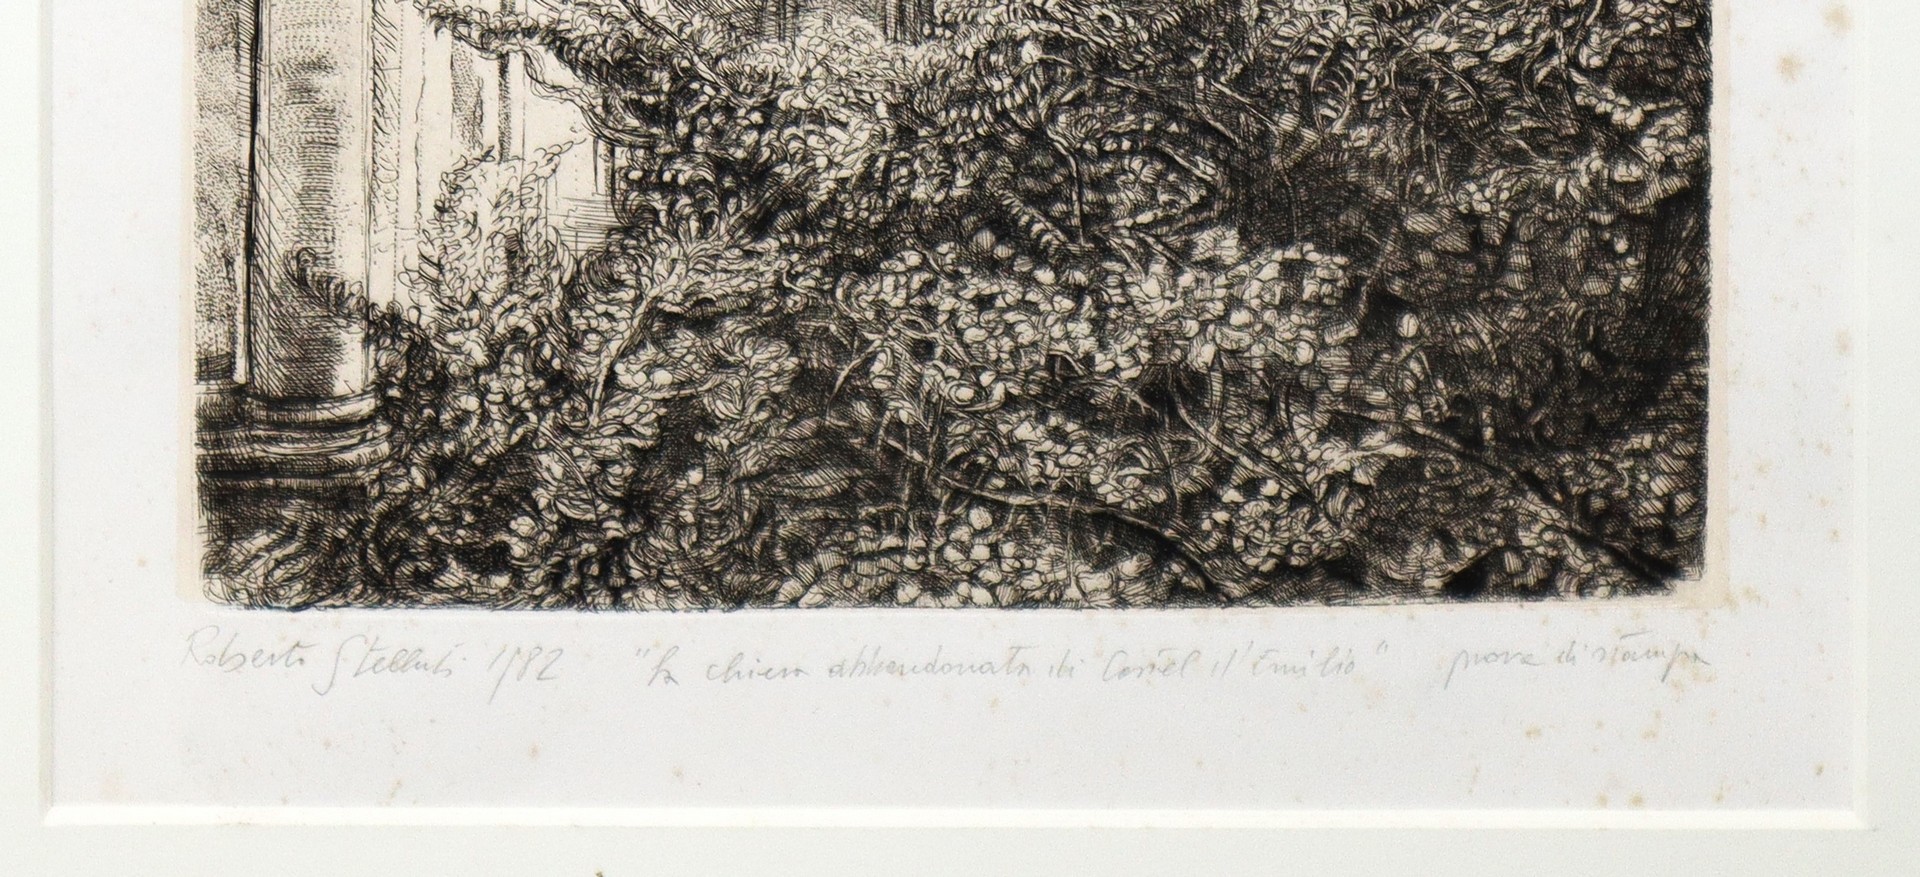 Roberto Stelluti 1982 "La chiesa abbandonata di Castel d'Emilio" prova di stampa